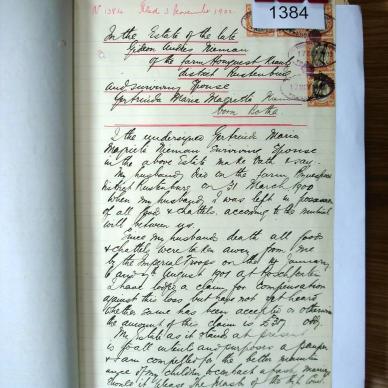 1384
No 1384 Filed 3 November 1902
In the Estate of the late
Nieman
of the farm
district Rustenburg
and surviving Spouse
Gertruida Maria Magrieta Nieman
born Botha
I the undersigned Gertruida Maria
Magrieta Nieman Surviving Spouse
in the above Estate make Oath & say.
My husband died on the farm
District Rustenburg on 31 March 1900
When my husband I was left in possession
of all goods & chattels according to the mutual
will between us.
Since my husband death all goods
& chattels were taken away from me
by the Imperial Troops on the January
to August 1901 at
I have lodge a claim for compensation
against this loss but have not yet heard
whether same has been accepted or otherwise
the amount of this claim is
My Estate as it stands at present
is to all intent and purposes a pauper
& I am compelled for the better maintain
ance of my children to contract a fresh marriage
Should it please the Master of the High Court